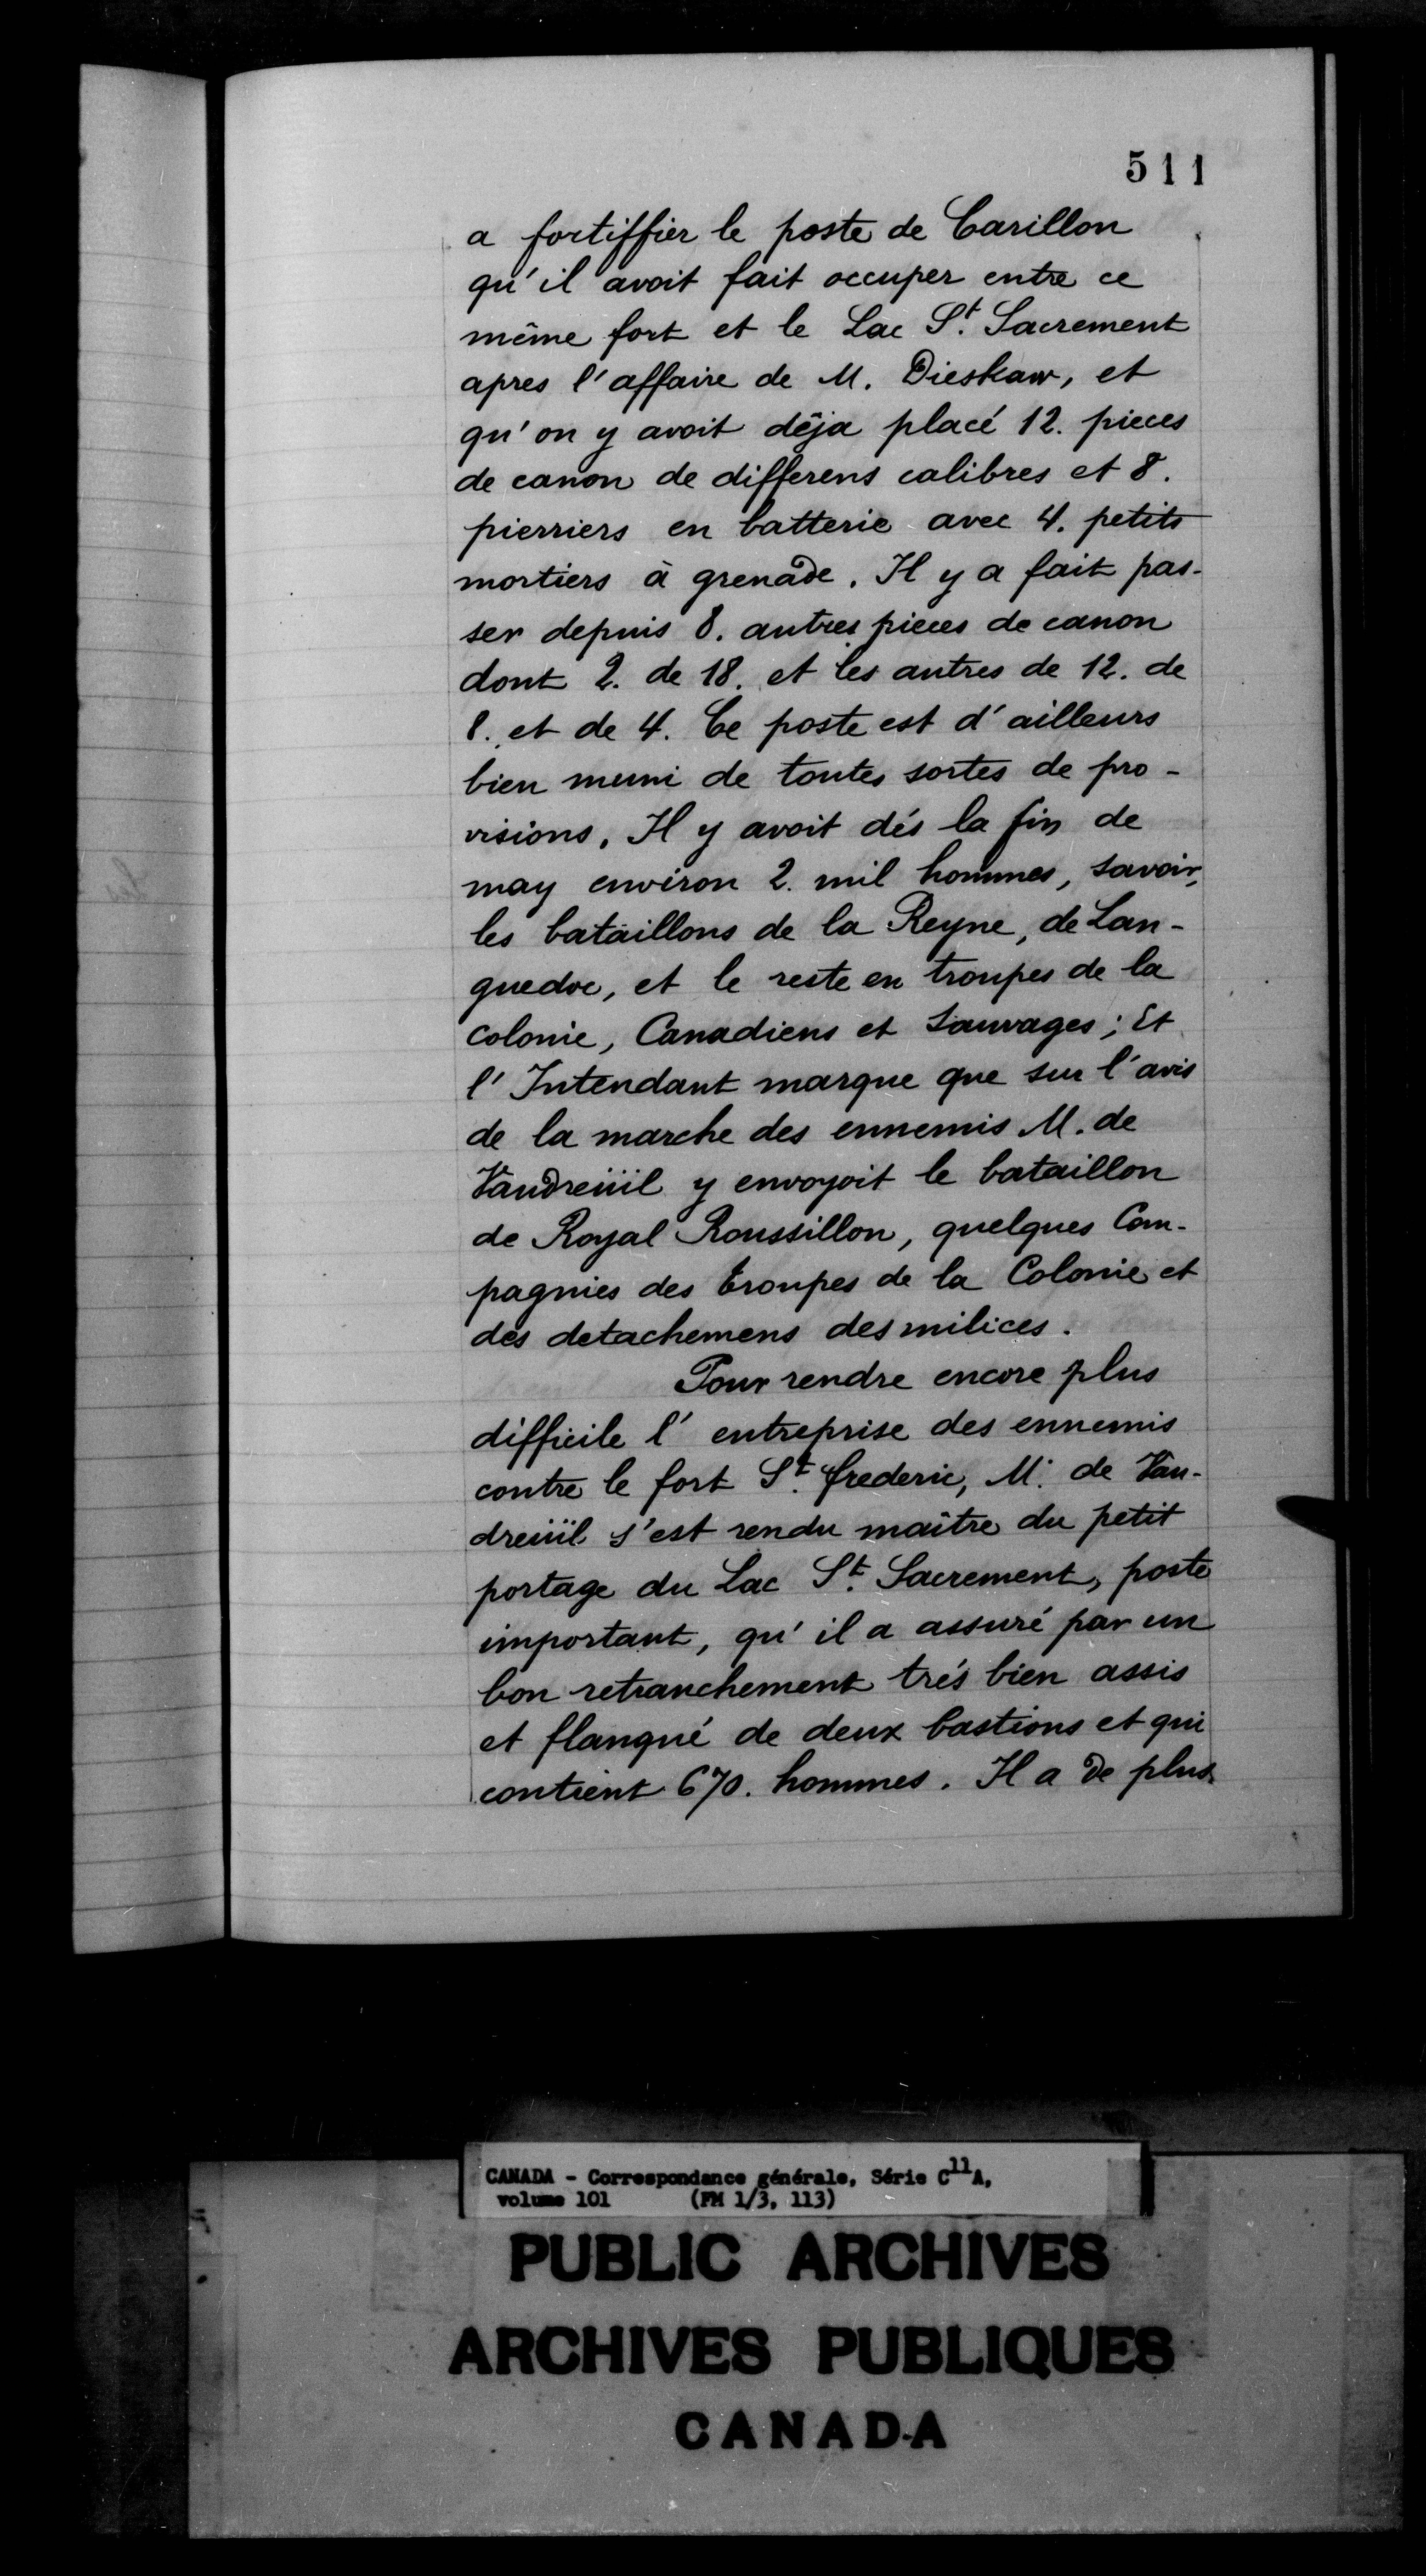 511
a fortiffier le poste de Carillon
qu'il avoit fait occuper entre ce
même fort et le Lac St. Sacrement
apres l'affaire de M. Dieskaw, et
qu'on y avoit dêja placé 12. pieces
de canon de differens calibres et 8.
pierriers en batterie avec 4. petits
mortiers à grenade. Il y a fait pas-
ser depuis 8. autres pieces de canon
dont 2. de 18. et les autres de 12. de
8. et de 4. Ce poste est d'ailleurs
bien muni de toutes sortes de pro-
visions. Il y avoit dés la fin de
may environ 2. mil hommes, savoir,
les bataillons de la Reyne, de Lan-
guedoc, et le reste en troupes de la
colonie, Canadiens et Sauvages; Et
l'Intendant marque que sur l'avis
de la marche des ennemis M. de
Vaudreüil y envoyoit le bataillon
de Royal Roussillon, quelques Com-
pagnies des troupes de la Colonie et
des detachemens des milices.
Pour rendre encore plus
difficile l'entreprise des ennemis
contre le fort St. frederic, M. de Vau-
dreüil s'est rendu maître du petit
portage du Lac St. Sacrement, poste
important, qu'il a assuré par un
bon retranchement trés bien assis
et flanqué de deux bastions et qui
contient 670. hommes. Il a de plus
CANADA - Correspondance générale, Série C11A,
volume 101 (FM 1/3, 113)
PUBLIC ARCHIVES
ARCHIVES PUBLIQUES
CANADA